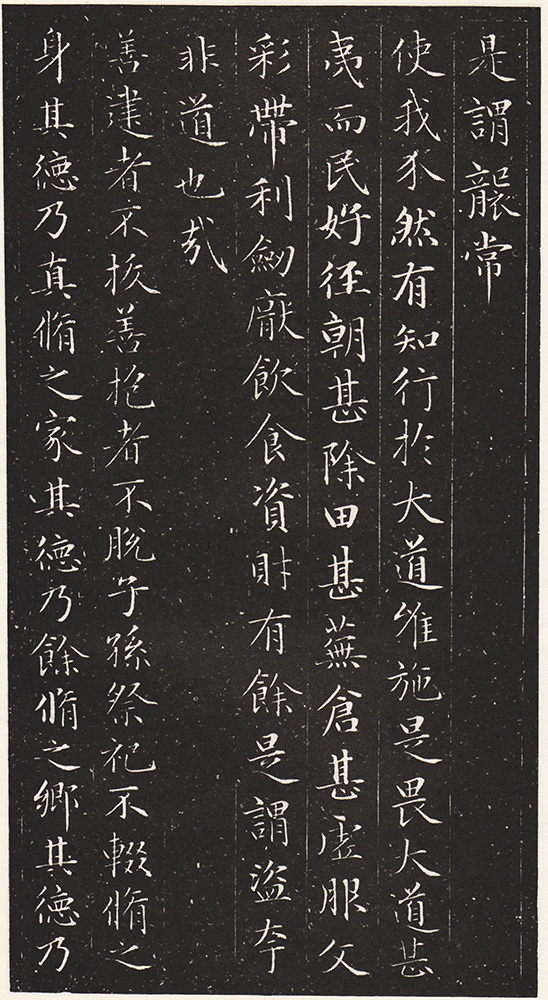 是謂襲常
使我介然有知行於大道唯施是畏大道甚
夷而民好徑朝甚除田甚蕪倉甚虛服文
彩帶利劒厭飲食資財有餘是謂盜夸
非道也哉
善建者不拔善抱者不脫子孫祭祀不輟脩之
身其德乃真脩之家其德乃餘脩之鄉其德乃